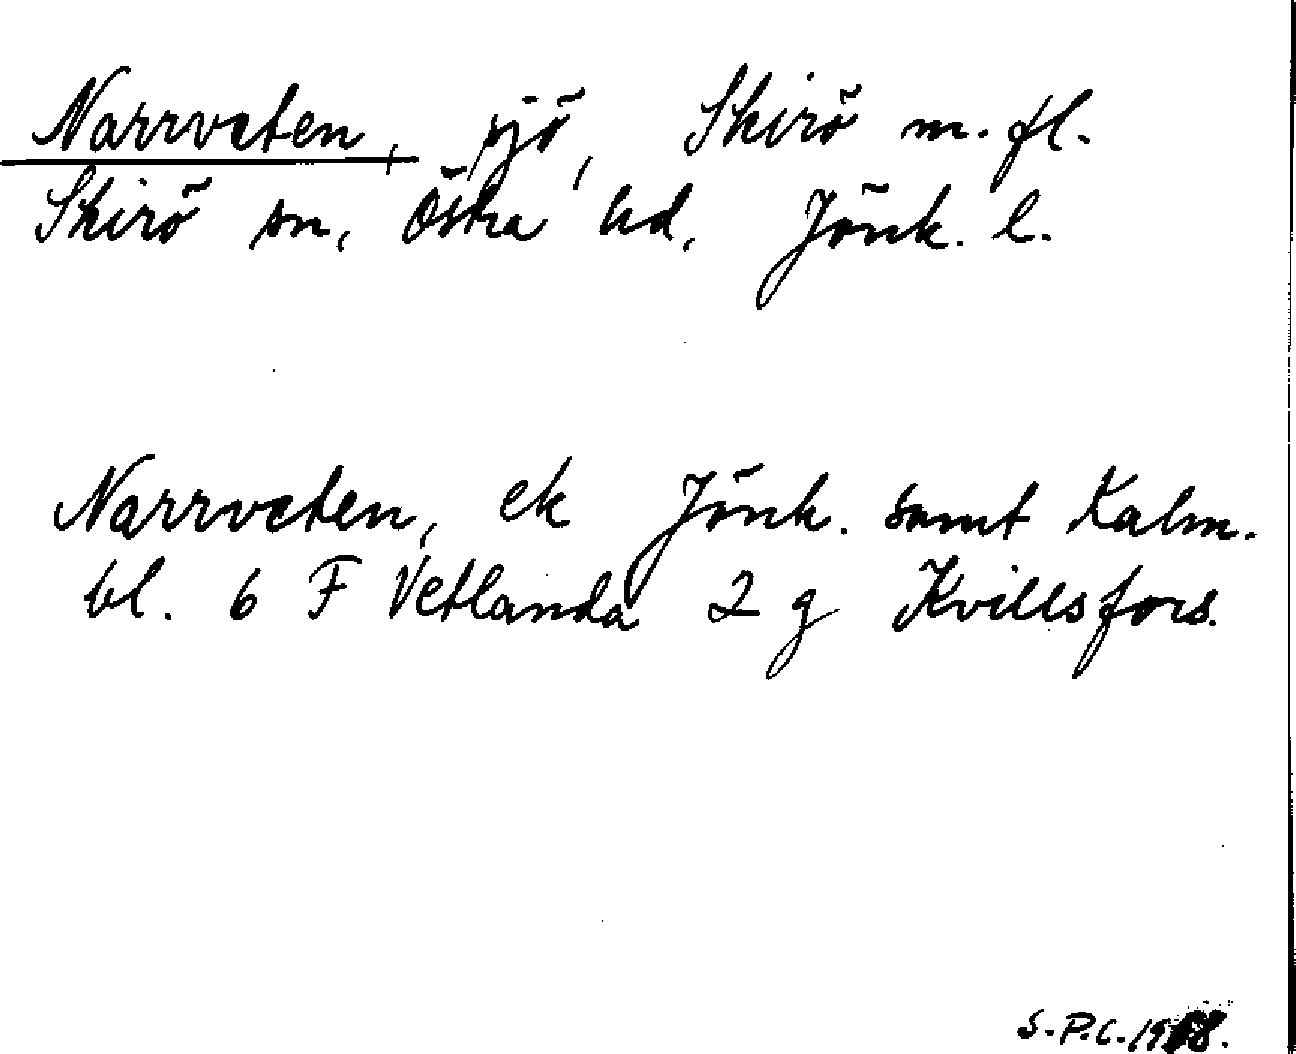 Narrveten, sjö, Skirö m. fl.
Skirö sn, Östra hd, Jönk. l.
Narrveten, ek Jönk. samt Kalm.
bl. 6 F Vetlanda 2 g Kvillsfors.
S.P.C.